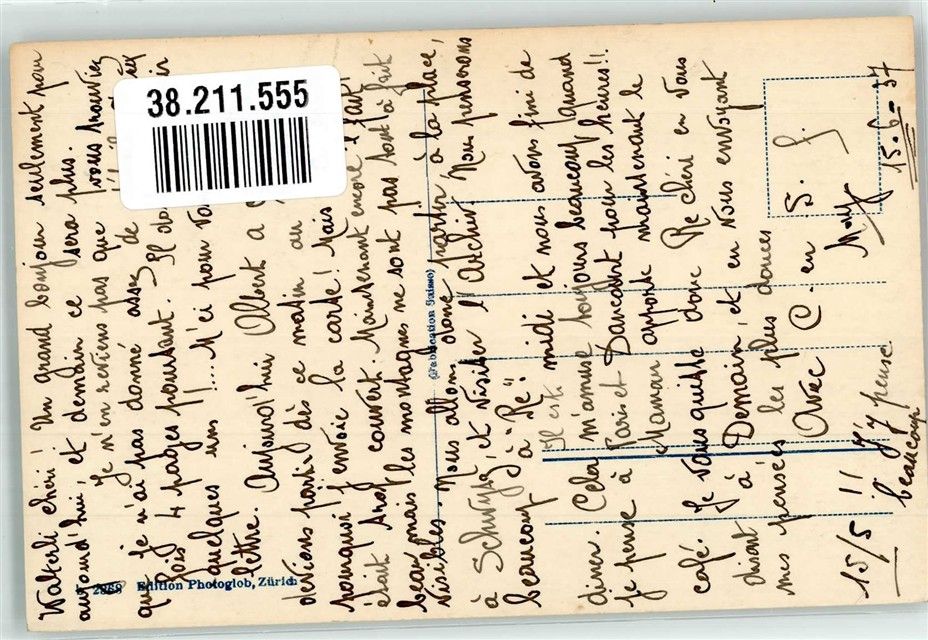 38.211.555
Walterli chéri! Un grand bonjour seulement pour
aujourd'hui, et demain ce sera plus.
Je m'en reviens pas que vous trouviez
que je n'ai pas donné assez de
Pas 4 pages pourtant.
quelques uns!.... M'ci pour vo
lettre. Aujourd'hui Albert a
devions partir dès ce matin au
pourquoi j'envoie la carte! Mais
était And couvert. Maintenant encore il fait
beau mais les montagnes ne sont pas tout à fait
visibles. Nous allons donc partir, à la place,
à Schwyz, et visiter l'Archiv. Nous penserons
beaucoup à "Re"!
Il est midi et nous avons fini de
dîner. Cela m'amuse toujours beaucoup quand
je pense à Paris et Dancourt pour les heures!!
Maman apporte maintenant le
café. Je vous quitte donc Re chéri en vous
disant à Demain, et en vous envoyant
mes pensées les plus douces
Avec C. en S. G.
Mouy
15-6-37
15/5 !! J'y pense
beaucoup!
2868 Edition Photoglob, Zürich
(Fabrication Suisse)